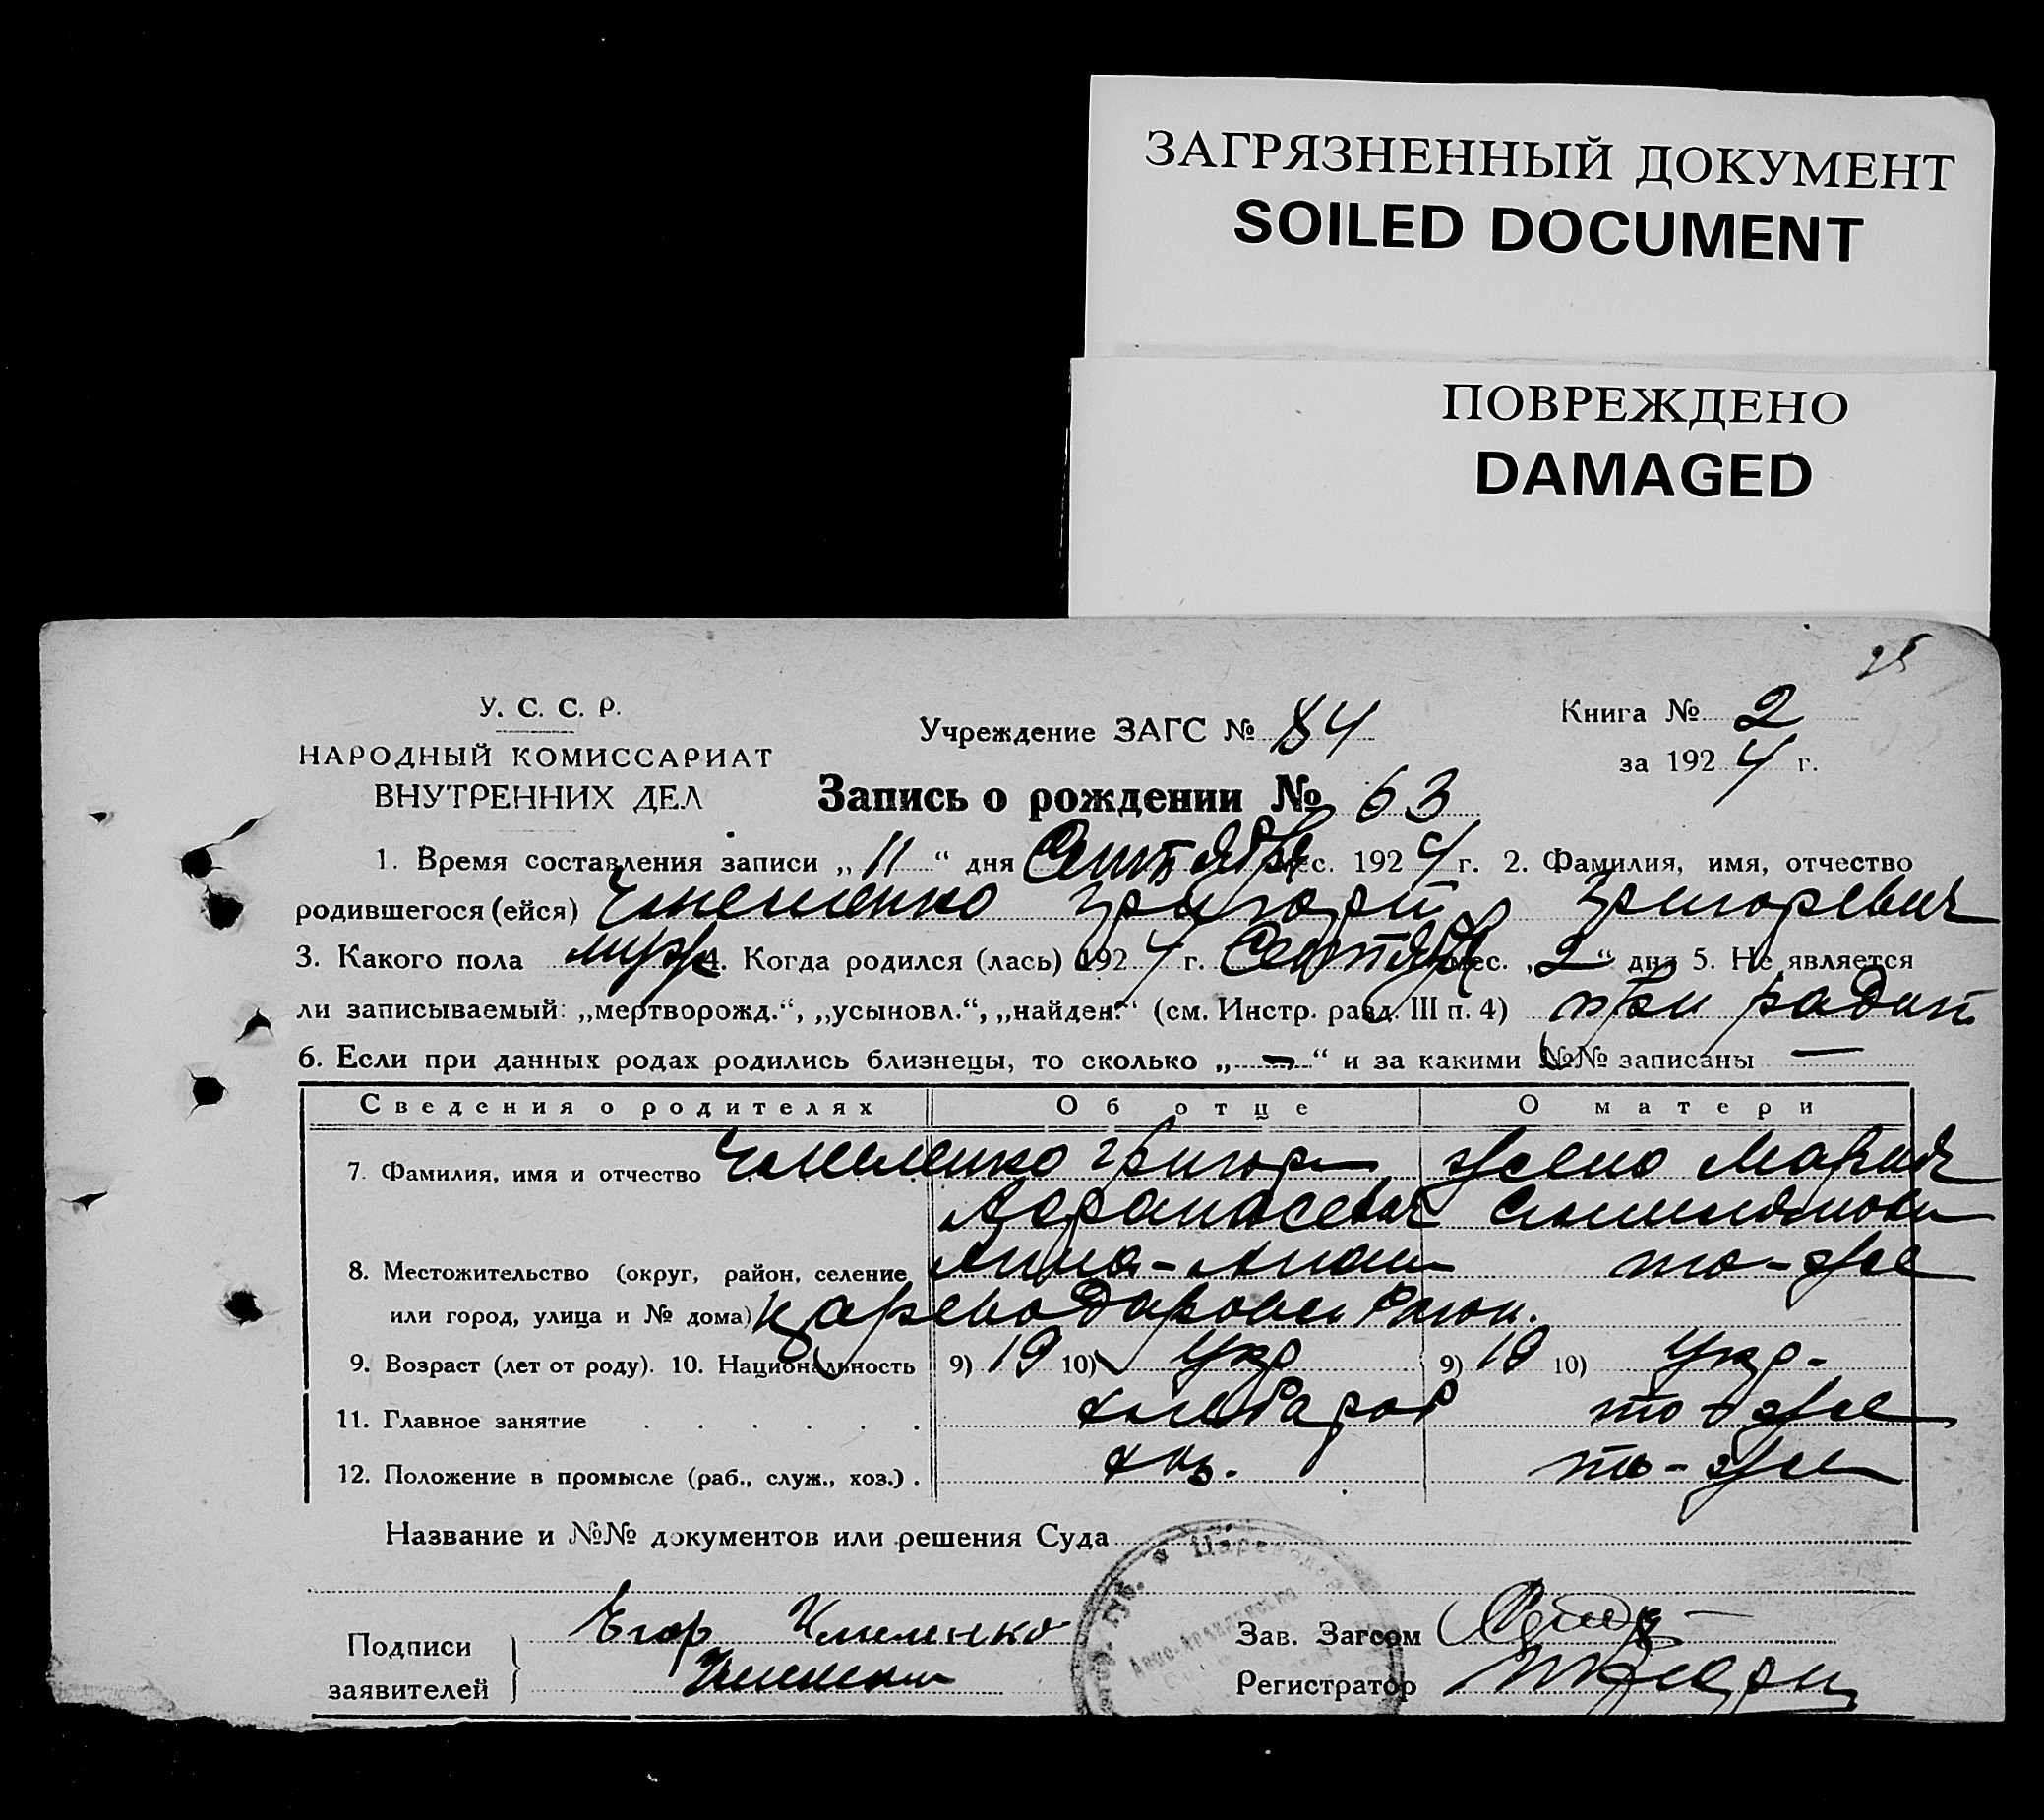 ЗАГРЯЗНЕННЫЙ ДОКУМЕНТ
SOILED DOCUMENT
ПОВРЕЖДЕНО
DAMAGED
У. С. С. Р.
НАРОДНЫЙ КОМИССАРИАТ
ВНУТРЕННИХ ДЕЛ
Учреждение ЗАГС № 84
Книга № 2
за 1924 г.
Запись о рождении № 63
1. Время составления записи „11“ дня Сентября мес. 1924 г. 2. Фамилия, имя, отчество
родившегося (ейся) Григорий Григоревич
3. Какого пола муж 4. Когда родился (лась) 1924 г. Сентября мес. „2“ дня 5. Не является
ли записываемый: „мертворожд.“, „усыновл.“, „найден.“ (см. Инстр. разд. III п. 4) при
6. Если при данных родах родились близнецы, то сколько „-“ и за какими №№ записаны —
Сведения о родителях Об отце О матери
7. Фамилия, имя и отчество Григори жена Мария
Афанасевич
8. Местожительство (округ, район, селение Анно- то-же
или город, улица и № дома)
9. Возраст (лет от роду). 10. Национальность 9) 19 10) Укр 9) 19 10) Укр.
11. Главное занятие хлебароб то-же
12. Положение в промысле (раб., служ., хоз.) . хоз. то-же
Название и №№ документов или решения Суда
Подписи заявителей Егор
Зав. Загсом
Регистратор